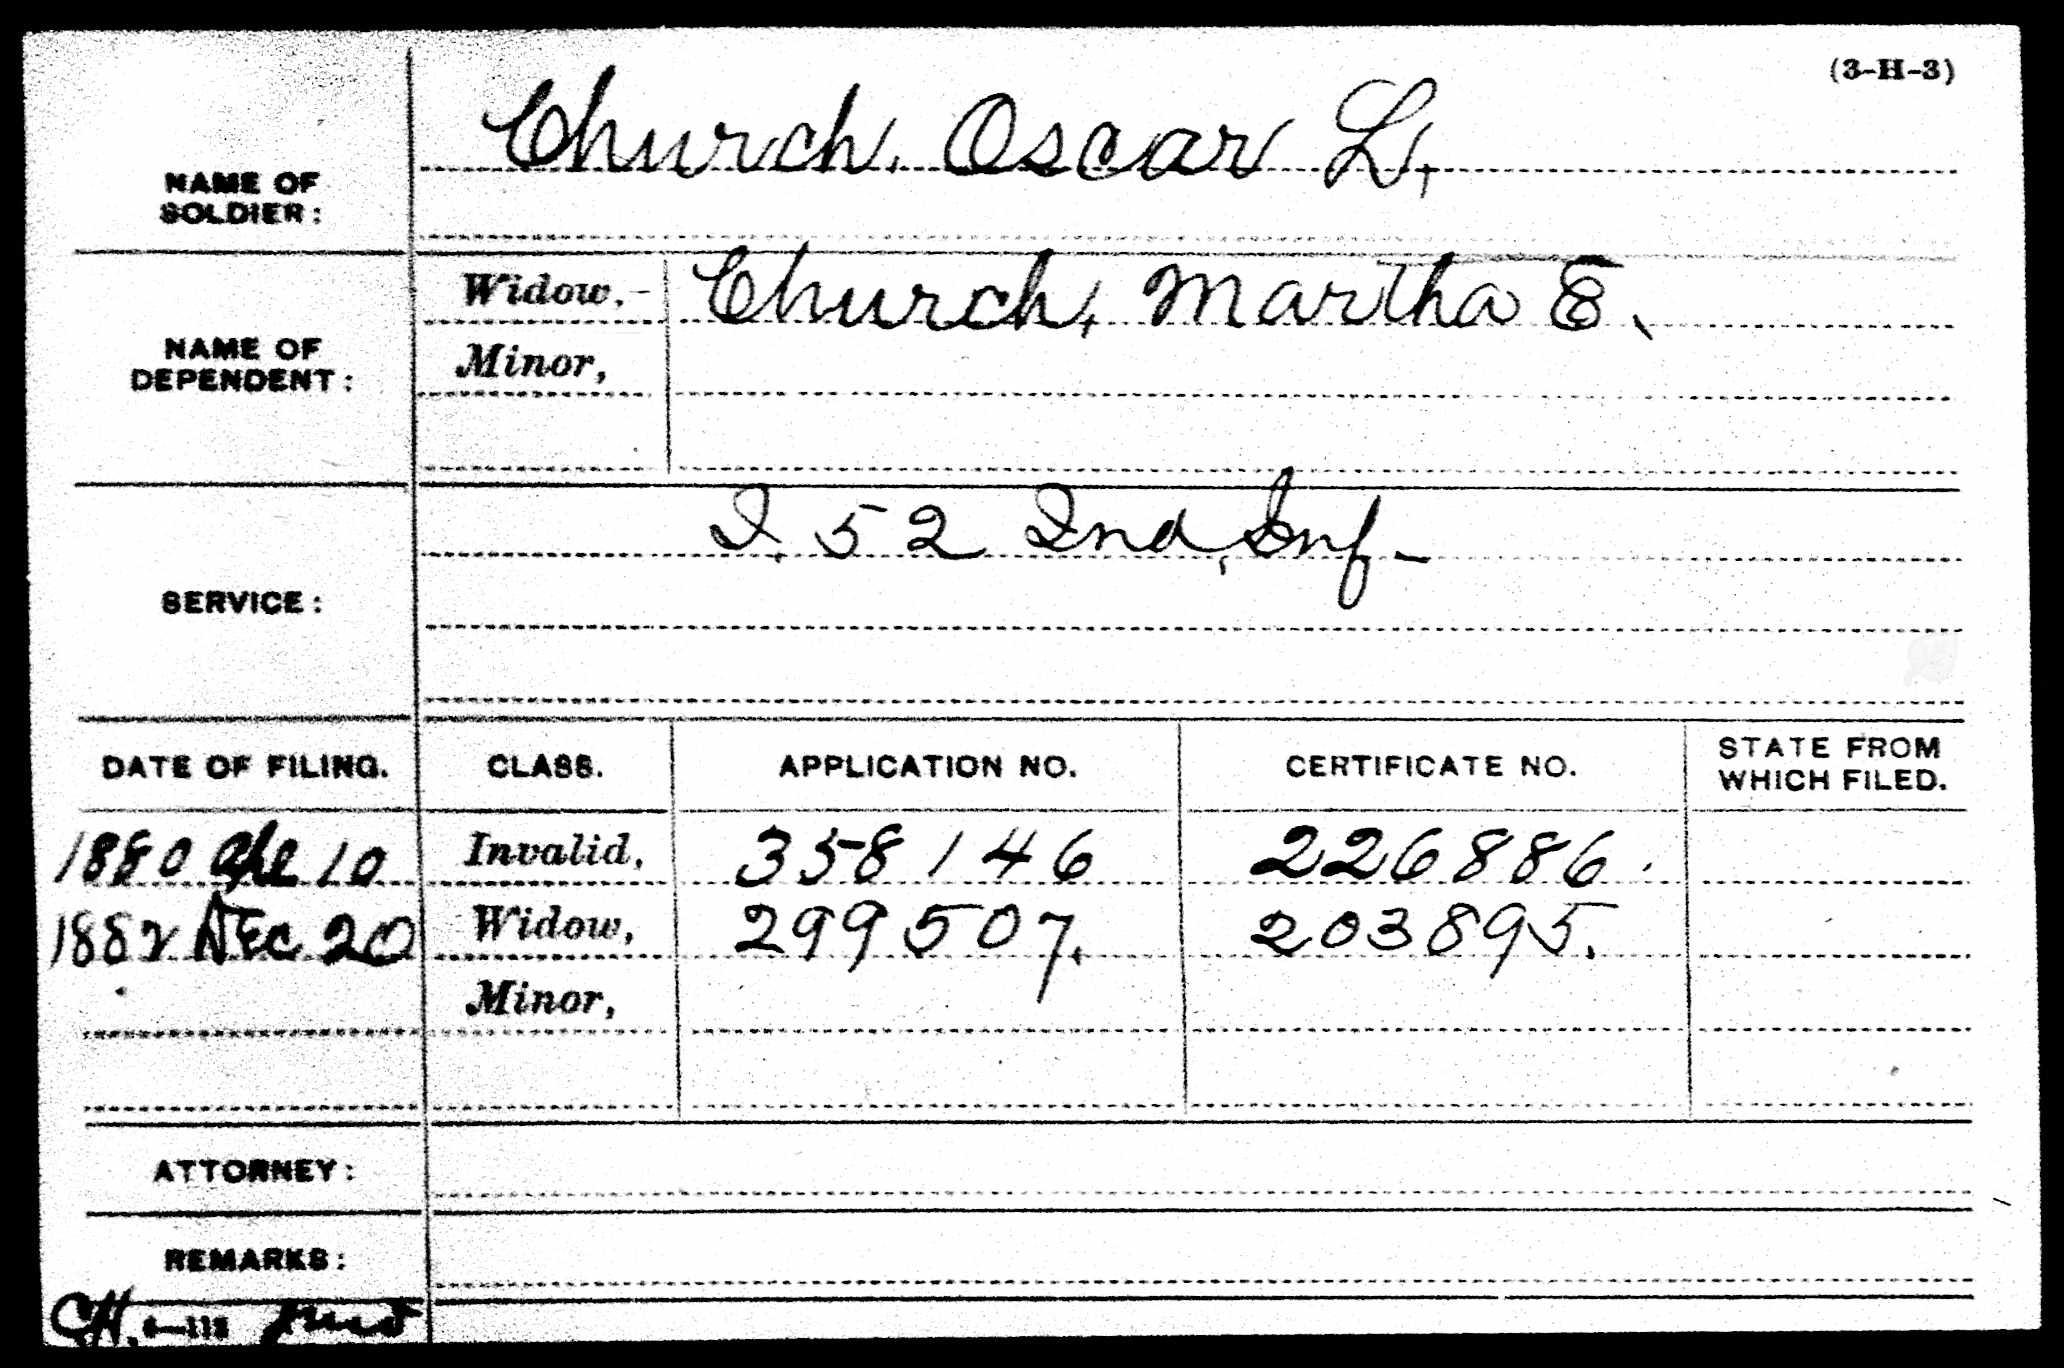 (3-H-3)
NAME OF SOLDIER: Church, Oscar L,
NAME OF DEPENDENT: Widow, Church, Martha E.
Minor,
SERVICE: I. 52 Ind, Inf-
DATE OF FILING. CLASS. APPLICATION NO. CERTIFICATE NO. STATE FROM WHICH FILED.
1880 Apl 10 Invalid, 358146 226886.
1882 DEC 20 Widow, 299507. 203895.
Minor,
ATTORNEY:
REMARKS:
CH. 6—113